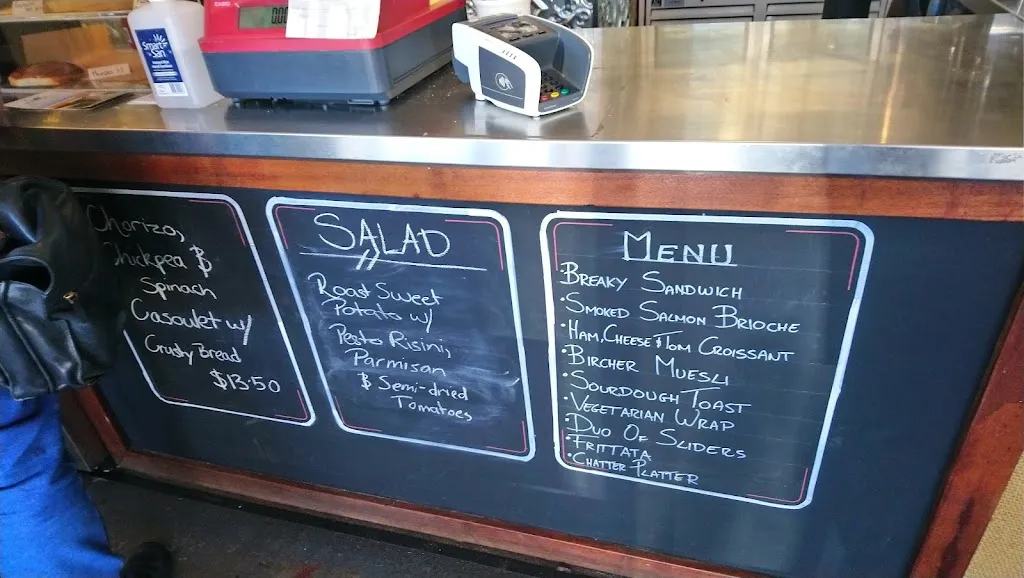 CASIO
0.00
Smart
San
Chorizo,
Chickpea &
Spinach
Casoulet w/
Crusty Bread
$13.50
SALAD
Roast Sweet
Potato w/
Pesto Risini,
Parmisan
& Semi-dried
Tomatoes
MENU
·BREAKY SANDWICH
·SMOKED SALMON BRIOCHE
·HAM, CHEESE & TOM CROISSANT
·BIRCHER MUESLI
·SOURDOUGH TOAST
·VEGETARIAN WRAP
·DUO OF SLIDERS
·FRITTATA
·CHATTER PLATTER